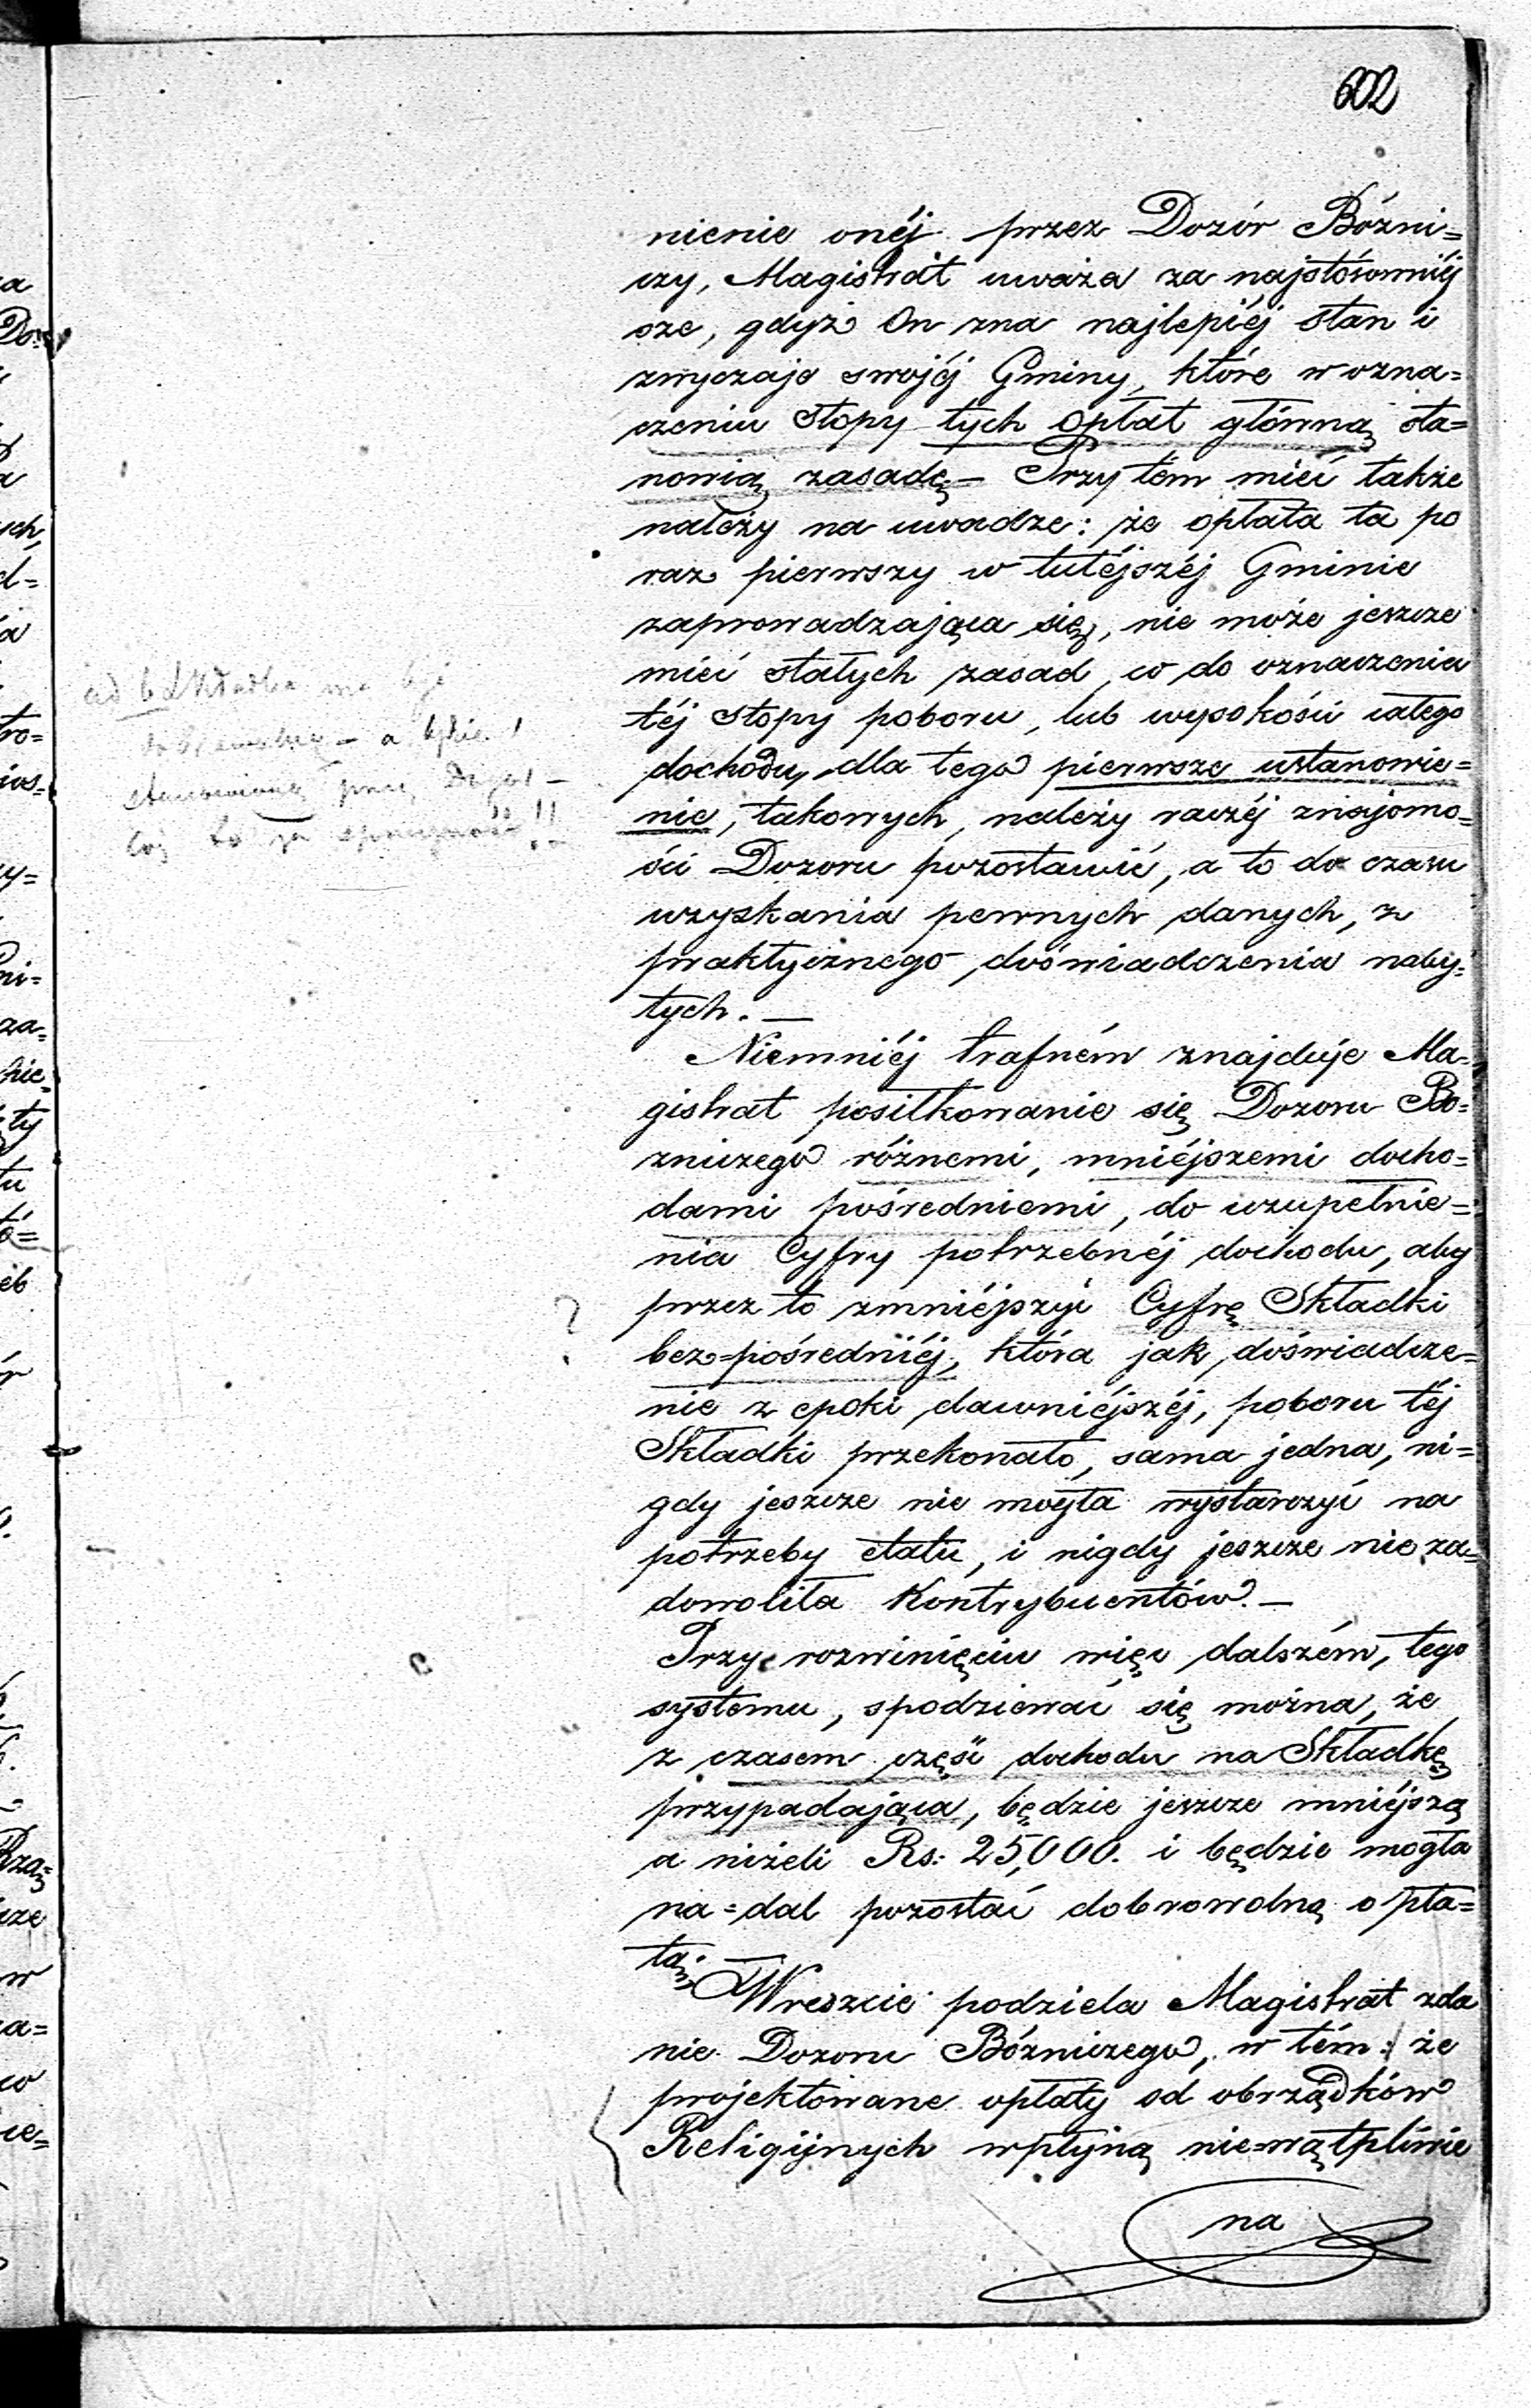 602
nienie onéj przez Dozór Bóżni=
czy, Magistrat uważa za najstósowniéj
sze, gdyż On zna najlepiéj stan i
zwyczaje swojéj Gminy, które w ozna=
czeniu stopy tych opłat główną sta=
nowią zasadę.— Przytém mieć także
należy na uwadze: że opłata ta po
raz pierwszy w tutéjszéj Gminie
zaprowadzająca się, nie może jeszcze
mieć stałych zasad, co do oznaczenia
téj stopy poboru, lub wysokości całego
dochodu, dla tego pierwsze ustanowie=
nie, takowych, należy raczéj znajomo=
ści Dozoru pozostawić, a to do czasu
uzyskania pewnych danych, z
praktycznego doświadczenia naby=
tych.—
Niemniéj trafném znajduje Ma=
gistrat posiłkowanie się Dozoru Bo=
zniczego różnemi, mniéjszemi docho=
dami pośredniemi, do uzupełnie=
nia Cyfry potrzebnéj dochodu, aby
? przez to zmniéjszyć Cyfrę Składki
bez=pośredniéj, która jak doświadcze=
nie z epoki dawniéjszéj, poboru téj
Składki przekonało, sama jedna, ni=
gdy jeszcze nie mogła wystarczyć na
potrzeby etatu, i nigdy jeszcze nie za=
dowoliła Kontrybuentów.—
Przy rozwinięciu więc dalszém, tego
systemu, spodziewać się można, że
z czasem część dochodu na Składkę
przypadająca, będzie jeszcze mniéjszą
a niżeli Rs: 25,000. i będzie mogła
na=dal pozostać dobrowolną opła=
tą.—
Wreszcie podziela Magistrat zda
nie Dozoru Bóżniczego, w tém: że
projektowane opłaty od obrządków
Religijnych wpłyną nie=wątpliwie
na
ad b Składka ma być
a będzie
przez
to za